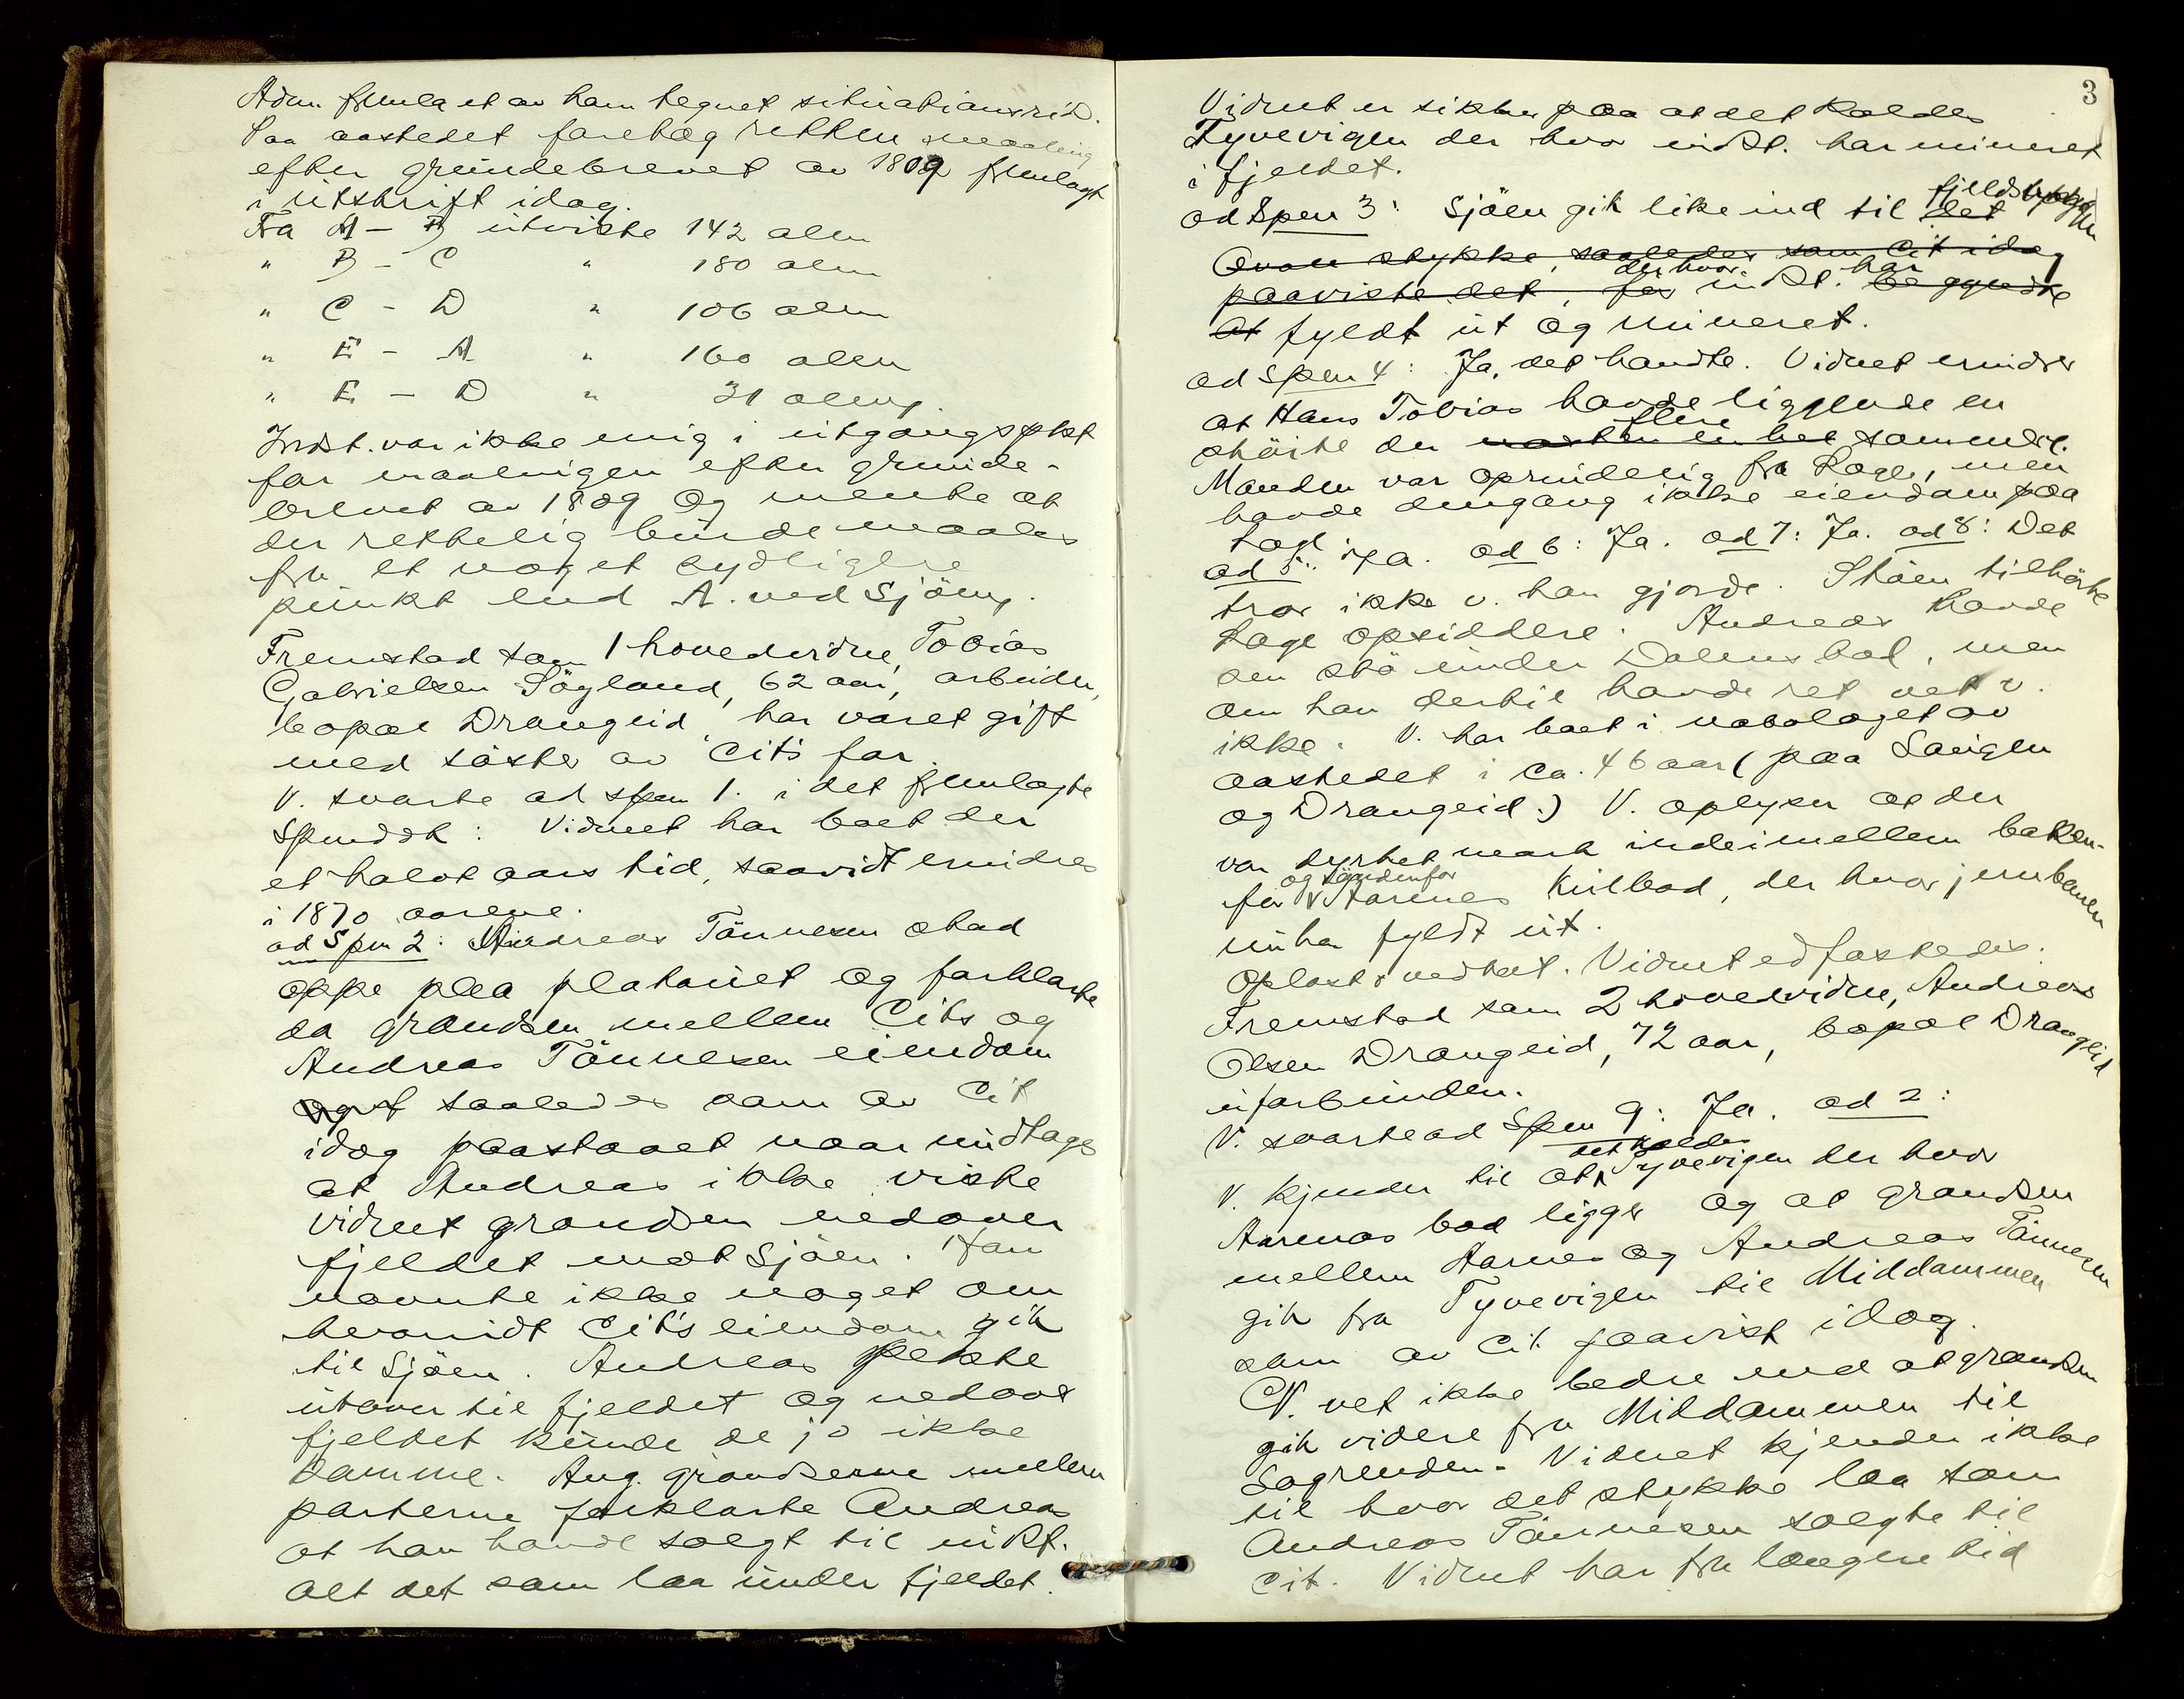 Adm fremla et av ham tegnet situationsrids.
Paa aastedet foretog retten maaling
efter grundebrevet av 1809 fremlagt
i utskrift idag.
Fra A - B utviste 142 alen
" B - C " 180 alen
" C - D " 106 alen
" E - A " 160 alen
" E - D " 31 alen.
Indst. var ikke enig i utgangspkt
for maalingen efter grunde-
brevet av 1809 og mente at
der rettelig burde maales
fra et noget sydligere
punkt end A. ved Sjöen.
Fremstod som 1 hovedvidne, Tobias
Gabrielsen Sögland, 62 aar, arbeider,
bopæl Drangeid, har været gift
med söster av Cit's far.
V. svarte ad spm 1. i det fremlagte
Spmdok: Vidnet har boet der
et halvt aars tid, saavidt erindres
i 1870 aarene.
ad Spm 2: Andreas Tönnesen stod
oppe paa platauet og forklarte
da grændsen mellem Cits og
Andreas Tönnesen eiendom
saaledes som av Cit
idag paastaaet naar undtages
at Andreas ikke viste
vidnet grændsen nedover
fjeldet mot Sjöen. Han
nævnte ikke noget om
hvorvidt Cit's eiendom gik
til Sjöen. Andreas pekte
utover til fjeldet og nedover
fjeldet kunde de jo ikke
komme. Ang. grændserne mellem
parterne forklarte Andreas
at han havde solgt til indst.
alt det som laa under fjeldet.
3
Vidnet er sikker paa at det kaldes
Tyvevigen der hvor indst. har mineret
i fjeldet.
ad Spm 3: Sjöen gik like ind til det fjeldstykke
stykke, saaledes som Cit idag
paaviste det, der hvor indst. har begyndte
at fyldt ut og mineret.
ad Spm 4: Ja, det hændte. Vidnet erindrer
at Hans Tobias havde liggende en
der flere sammesl.
Manden var oprindelig fra Rage, men
havde dengang ikke eiendom paa
ad 5: ja. ad 6: Ja. ad 7: Ja. ad 8: Det
tror ikke v. han gjorde. Stöen tilhörte
Rage opsiddere. Andreas havde
sen stö under Dalens bod, men
om han dertil havde ret vet v.
ikke. V. har boet i nabolaget av
aastedet i ca. 46 aar (paa Saugen
og Drangeid.) V. oplyser at der
var dyrket mark indeimellem baken-
for og söndenfor Aarenes Kulbod, der hvor jernbanen
nu har fyldt ut.
Oplæst & vedtat. Vidnet edfæstedes.
Fremstod som 2 hovedvidne, Andreas
Olsen Drangeid, 72 aar, bopæl Drangeid
uforbunden.
V. svarte ad Spm 9: Ja. ad 2:
V. kjender til at det kaldes Tyvevigen der hvor
Aarenes bod ligger og at grændsen
mellem Aarnes og Andreas Tönnesen
gik fra Tyvevigen til Middammen
som av Cit. paavist idag.
V. vet ikke bedre end at grændsen
gik videre fra Middammen til
Sagrenden. Vidnet kjender ikke
til hvor det stykke laa som
Andreas Tönnesen solgte til
Cit. Vidnet har fra længere tid